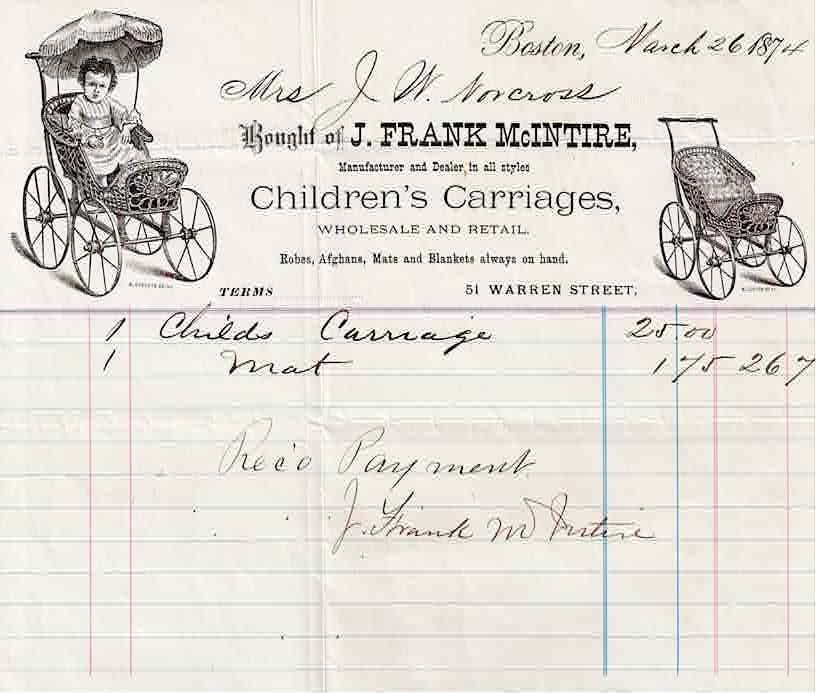 Boston, March 26 1874
Mrs J. W. Norcross
Bought of J. FRANK McINTIRE,
Manufacturer and Dealer in all styles
Children's Carriages,
WHOLESALE AND RETAIL.
Robes, Afghans, Mats and Blankets always on hand.
TERMS 51 WARREN STREET,
1 Childs Carriage 25.00
1 Mat 1 75 26 7
Rec'd Payment
J. Frank McIntire